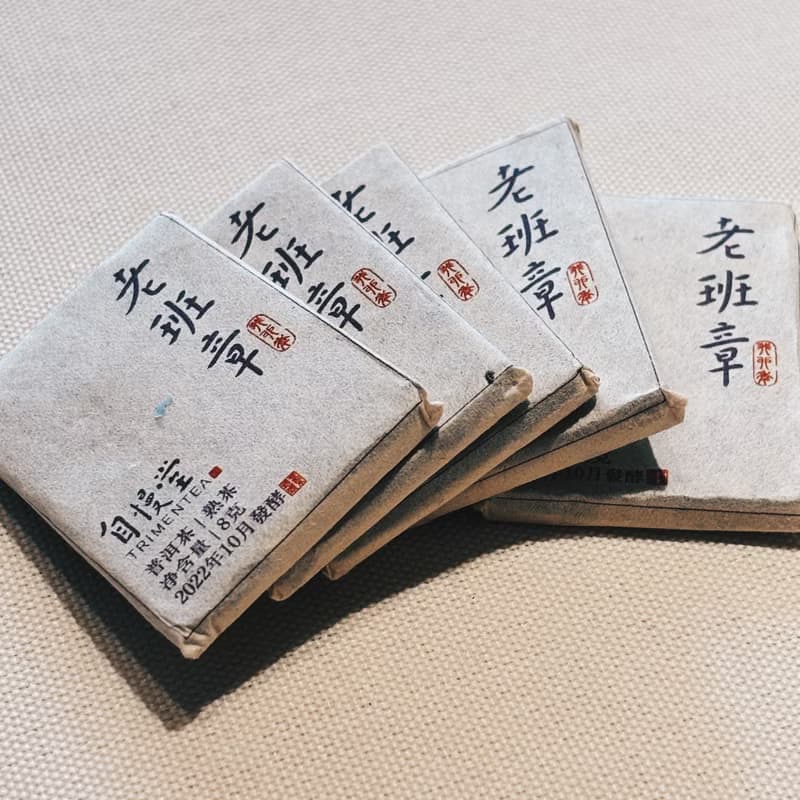 老班章
自慢堂
TRIMENTEA
普洱茶｜熟茶
净含量｜8克
2022年10月發酵
老班章
老班
章
老班章
老班章
10月發酵